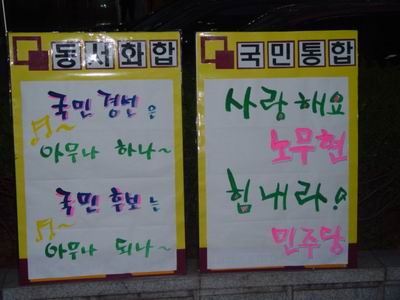 동서화합
국민 경선은
아무나 하나~
국민 후보는
아무나 되나~
국민통합
사랑해요
노무현
힘내라!
민주당